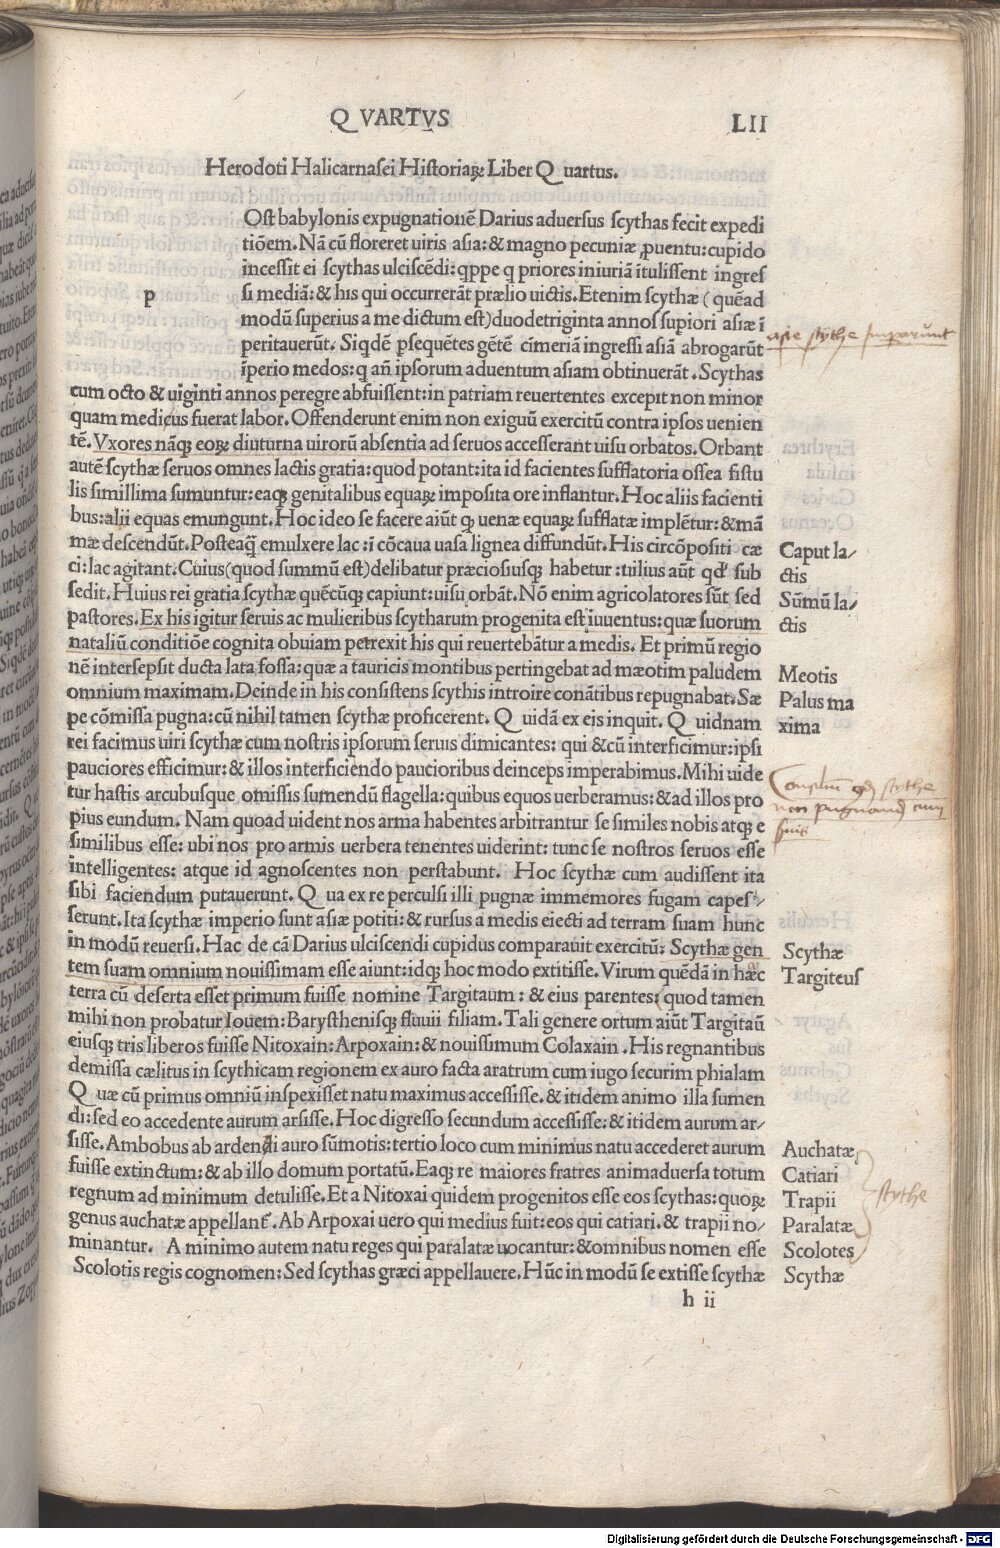 Q VARTVS
LII
Herodoti Halicarnasei Historiaꝝ Liber Q uartus.
p
Ost babylonis expugnationē Darius aduersus scythas fecit expedi
tiōem. Nā cū floreret uiris asia: & magno pecuniæ ꝓuentu: cupido
incessit ei scythas ulciscēdi: qppe q priores iniuriā ītulissent ingres
si mediā: & his qui occurrerāt prælio uictis. Etenim scythæ ( quēad
modū superius a me dictum est) duodetriginta annos supiori asiæ ī
peritauerūt. Siqdē psequētes gētē cimeriā ingressi asiā abrogarūt
īperio medos: q añ ipsorum aduentum asiam obtinuerāt. Scythas
cum octo & uiginti annos peregre abfuissent: in patriam reuertentes excepit non minor
quam medicus fuerat labor. Offenderunt enim non exiguū exercitū contra ipsos uenien
tē. Vxores nāqꝫ eoꝝ diuturna uirorū absentia ad seruos accesserant uisu orbatos. Orbant
autē scythæ seruos omnes lactis gratia: quod potant: ita id facientes sufflatoria ossea fistu
lis simillima sumuntur: eaqꝫ genitalibus equaꝝ imposita ore inflantur. Hoc aliis facienti
bus: alii equas emungunt. Hoc ideo se facere aiūt qꝫ uenæ equaꝝ sufflatæ implētur: & mā
mæ descendūt. Posteaq̄ emulxere lac: ī cōcaua uasa lignea diffundūt. His circōpositi cæ
ci: lac agitant. Cuius (quod summū est) delibatur præciosiusqꝫ habetur: uilius aūt qd' sub
sedit. Huius rei gratia scythæ quēcūqꝫ capiunt: uisu orbāt. Nō enim agricolatores sūt, sed
pastores. Ex his igitur seruis ac mulieribus scytharum progenita est iuuentus: quæ suorum
nataliū conditiōe cognita obuiam perrexit his qui reuertebātur a medis. Et primū regio
nē intersepsit ducta lata fossa: quæ a tauricis montibus pertingebat ad mæotim paludem
omnium maximam. Deinde in his consistens scythis introire conātibus repugnabat. Sæ
pe cōmissa pugna: cū nihil tamen scythæ proficerent. Q uidā ex eis inquit. Q uidnam
rei facimus uiri scythæ cum nostris ipsorum seruis dimicantes: qui & cū interficimur: ipsi
pauciores efficimur: & illos interficiendo paucioribus deinceps imperabimus. Mihi uide
tur hastis arcubusque omissis sumendū flagella: quibus equos uerberamus: & ad illos pro
pius eundum. Nam quoad uident nos arma habentes arbitrantur se similes nobis atqꝫ e
similibus esse: ubi nos pro armis uerbera tenentes uiderint: tunc se nostros seruos esse
intelligentes: atque id agnoscentes non perstabunt. Hoc scythæ cum audissent ita
sibi faciendum putauerunt. Q ua ex re perculsi illi pugnæ immemores fugam capes/
serunt. Ita scythæ imperio sunt asiæ potiti: & rursus a medis eiecti ad terram suam hunc
in modū reuersi. Hac de cā Darius ulciscendi cupidus comparauit exercitū: Scythæ gen
tem suam omnium nouissimam esse aiunt: idqꝫ hoc modo extitisse. Virum quēdā in hæc
terra cū deserta esset primum fuisse nomine Targitaum: & eius parentes: quod tamen
mihi non probatur Iouem: Barysthenisqꝫ fluuii filiam. Tali genere ortum aiūt Targitaū
eiusqꝫ tris liberos fuisse Nitoxain: Arpoxain: & nouissimum Colaxain. His regnantibus
demissa cælitus in scythicam regionem ex auro facta aratrum cum iugo securim phialam
Q uæ cū primus omniū inspexisset natu maximus accessisse. & itidem animo illa sumen
di: sed eo accedente aurum arsisse. Hoc digresso secundum accessisse: & itidem aurum ar/
sisse. Ambobus ab ardendi auro sūmotis: tertio loco cum minimus natu accederet aurum
fuisse extinctum: & ab illo domum portatū. Eaqꝫ re maiores fratres animaduersa totum
regnum ad minimum detulisse. Et a Nitoxai quidem progenitos esse eos scythas: quoꝝ
genus auchatæ appellant. Ab Arpoxai uero qui medius fuit: eos qui catiari. & trapii no/
minantur. A minimo autem natu reges qui paralatæ uocantur: & omnibus nomen esse
Scolotis regis cognomen: Sed scythas græci appellauere. Hūc in modū se extisse scythæ
h ii
asie scythe imparūnt
Caput la/
ctis
Sūmū la/
ctis
Meotis
Palus ma
xima
Consilium qd scythe
non pugnand cum
suis
Scythæ
Targiteus
Auchatæ
Catiari
Trapii
Paralatæ
Scolotes
Scythæ
scythe
Digitalisierung gefördert durch die Deutsche Forschungsgemeinschaft - DFG